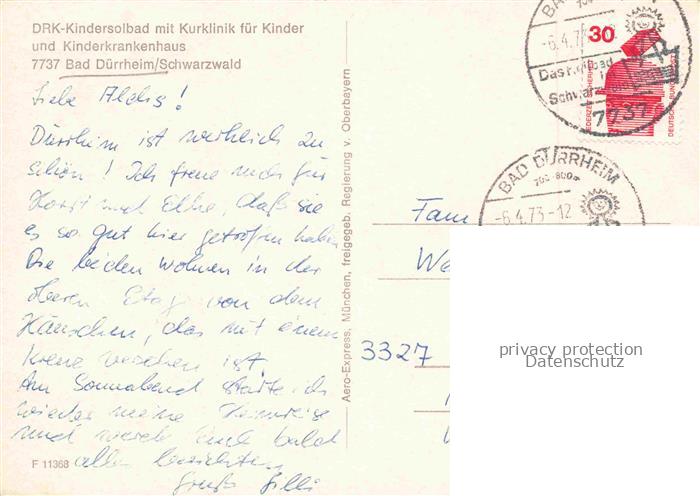 DRK-Kindersolbad mit Kurklinik für Kinder
und Kinderkrankenhaus
7737 Bad Dürrheim/Schwarzwald
Liebe Aldis!
Dürrheim ist wirklich zu
schön! Ich freue mich für
Horst und Elke, daß sie
es so gut hier getroffen haben.
Die beiden wohnen in der
oberen Etage von dem
Häuschen, das mit einem
Kreuz versehen ist
Am Sonnabend starte ich
wieder meine Heimreise
und werde Euch bald
alles berichten.
Gruß Silli
F 11368
Aero-Express, München, freigegeb. Regierung v. Oberbayern
30
DEUTSCHE BUNDESPOST
JEDERZEIT SICHERHEIT
-6.4.73-12
Schwarzw
7737
BAD DÜRRHEIM
700-800m
-6.4.73-12
Fam
3327
privacy protection
Datenschutz